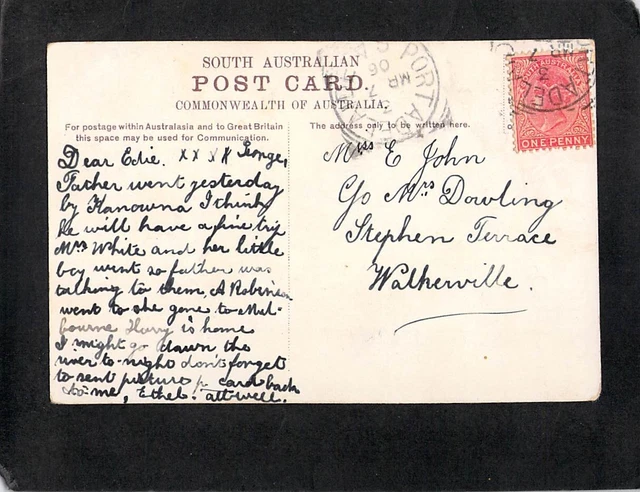 SOUTH AUSTRALIAN
POST CARD.
COMMONWEALTH OF AUSTRALIA.
For postage within Australasia and to Great Britain
this space may be used for Communication.
The address only to be written here.
Dear Edie. xxxx George,
Father went yesterday
by Kanowna I think
he will have a fine trip
Mrs White and her little
boy went so father was
talking to them, A Robinson
went to she gone to Mel-
bourne Harry is home
I might go down the
river to-night don't forget
to sent picture p. card back
to me, Ethel. all well.
Miss E John
C/o Mrs Dowling
Stephen Terrace
Walkerville.
PORT ADELAIDE
MR 7
06
SOUTH AUSTRALIA
ONE PENNY
ADEL